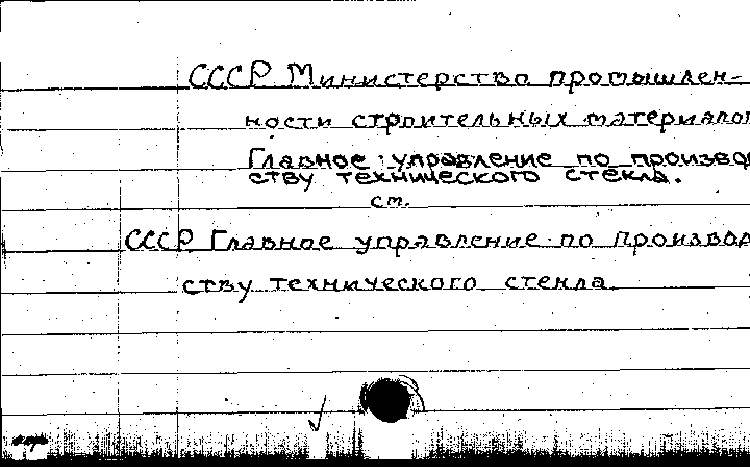 СССР Министерство промышлен-
ности строительных материалов
Главное управление по производ
ству технического стекла.
см.
СССР Главное управление по производ
ству технического стекла.